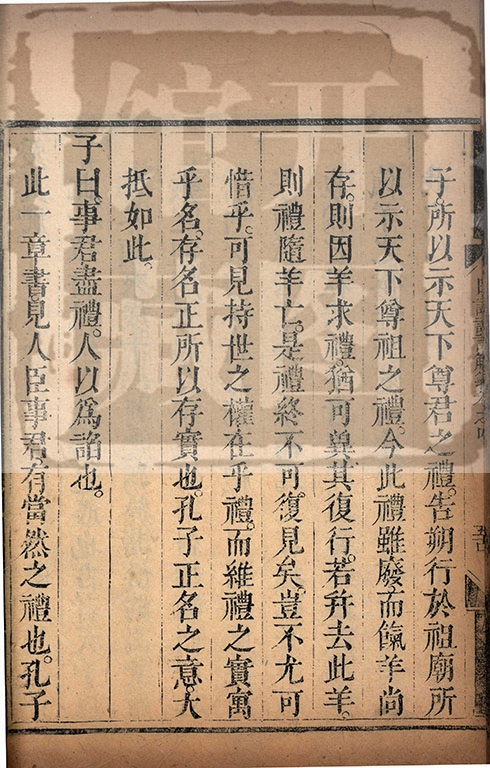 子所以示天下尊君之禮。告朔行於祖廟所
以示天下尊祖之禮。今此禮雖廢而餼羊尚
存。則因羊求禮。猶可冀其復行。若幷去此羊。
則禮隨羊亡。是禮終不可復見矣。豈不尤可
惜乎。可見持世之權在乎禮。而維禮之實寓
乎名。存名正所以存實也。孔子正名之意。大
抵如此。
子曰。事君盡禮。人以爲諂也。
此一章書見人臣事君有當然之禮也。孔子